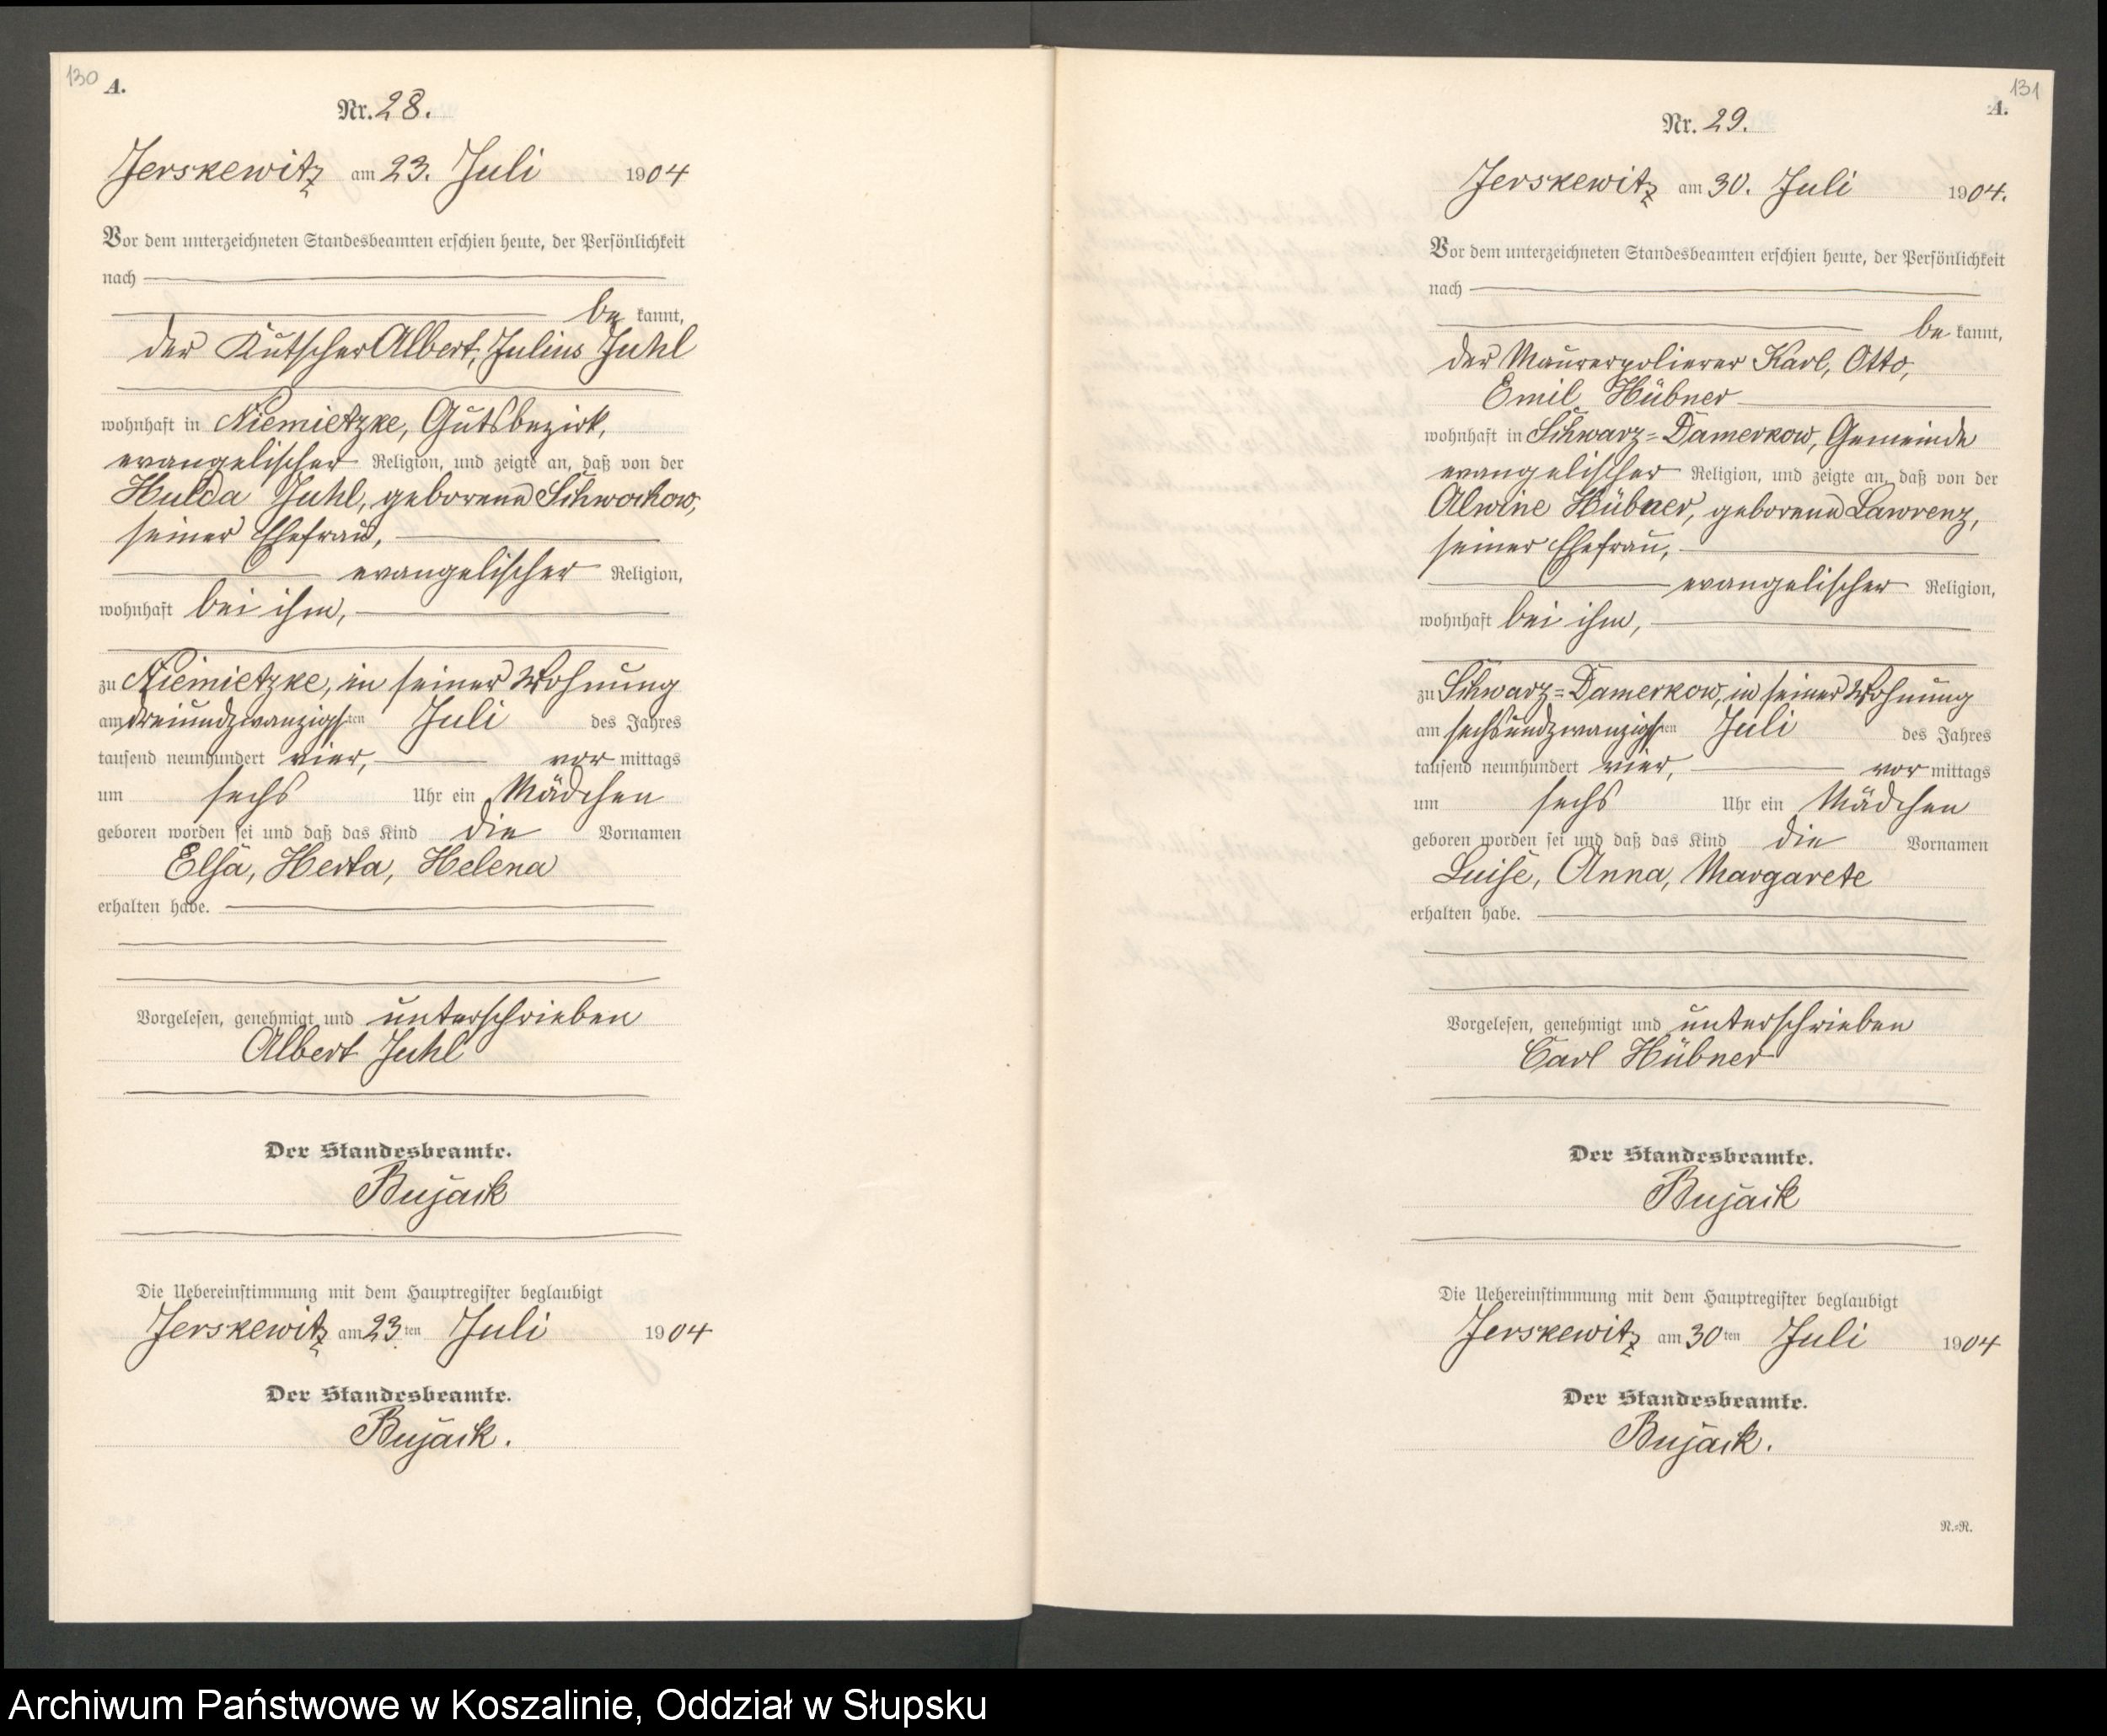 130
A.
Nr. 28.
Jerskewitz am 23. Juli 1904
Vor dem unterzeichneten Standesbeamten erschien heute, der Persönlichkeit
nach
be kannt,
der Kutscher Albert, Julius Juhl
wohnhaft in Niemietzke, Gutsbezirk,
evangelischer Religion, und zeigte an, daß von der
Hulda Juhl, geborene Schwochow,
seiner Ehefrau,
evangelischer Religion,
wohnhaft bei ihm,
zu Niemietzke, in seiner Wohnung
am dreiundzwanzigsten Juli des Jahres
tausend neunhundert vier, vor mittags
um sechs Uhr ein Mädchen
geboren worden sei und daß das Kind die Vornamen
Elsa, Herta, Helena
erhalten habe.
Vorgelesen, genehmigt und unterschrieben
Albert Juhl
Der Standesbeamte.
Bujack
Die Uebereinstimmung mit dem Hauptregister beglaubigt
Jerskewitz am 23.ten Juli 1904
Der Standesbeamte.
Bujack.
131
A.
Nr. 29.
Jerskewitz am 30. Juli 1904.
Vor dem unterzeichneten Standesbeamten erschien heute, der Persönlichkeit
nach
be kannt,
der Maurerpolierer Karl, Otto,
Emil Hübner
wohnhaft in Schwarz=Damerkow, Gemeinde
evangelischer Religion, und zeigte an, daß von der
Alwine Hübner, geborene Lawrenz,
seiner Ehefrau,
evangelischer Religion,
wohnhaft bei ihm,
zu Schwarz=Damerkow, in seiner Wohnung
am sechsundzwanzigsten Juli des Jahres
tausend neunhundert vier, vor mittags
um sechs Uhr ein Mädchen
geboren worden sei und daß das Kind die Vornamen
Luise, Anna, Margarete
erhalten habe.
Vorgelesen, genehmigt und unterschrieben
Carl Hübner
Der Standesbeamte.
Bujack
Die Uebereinstimmung mit dem Hauptregister beglaubigt
Jerskewitz am 30ten Juli 1904
Der Standesbeamte.
Bujack.
N.=N.
Archiwum Państwowe w Koszalinie, Oddział w Słupsku